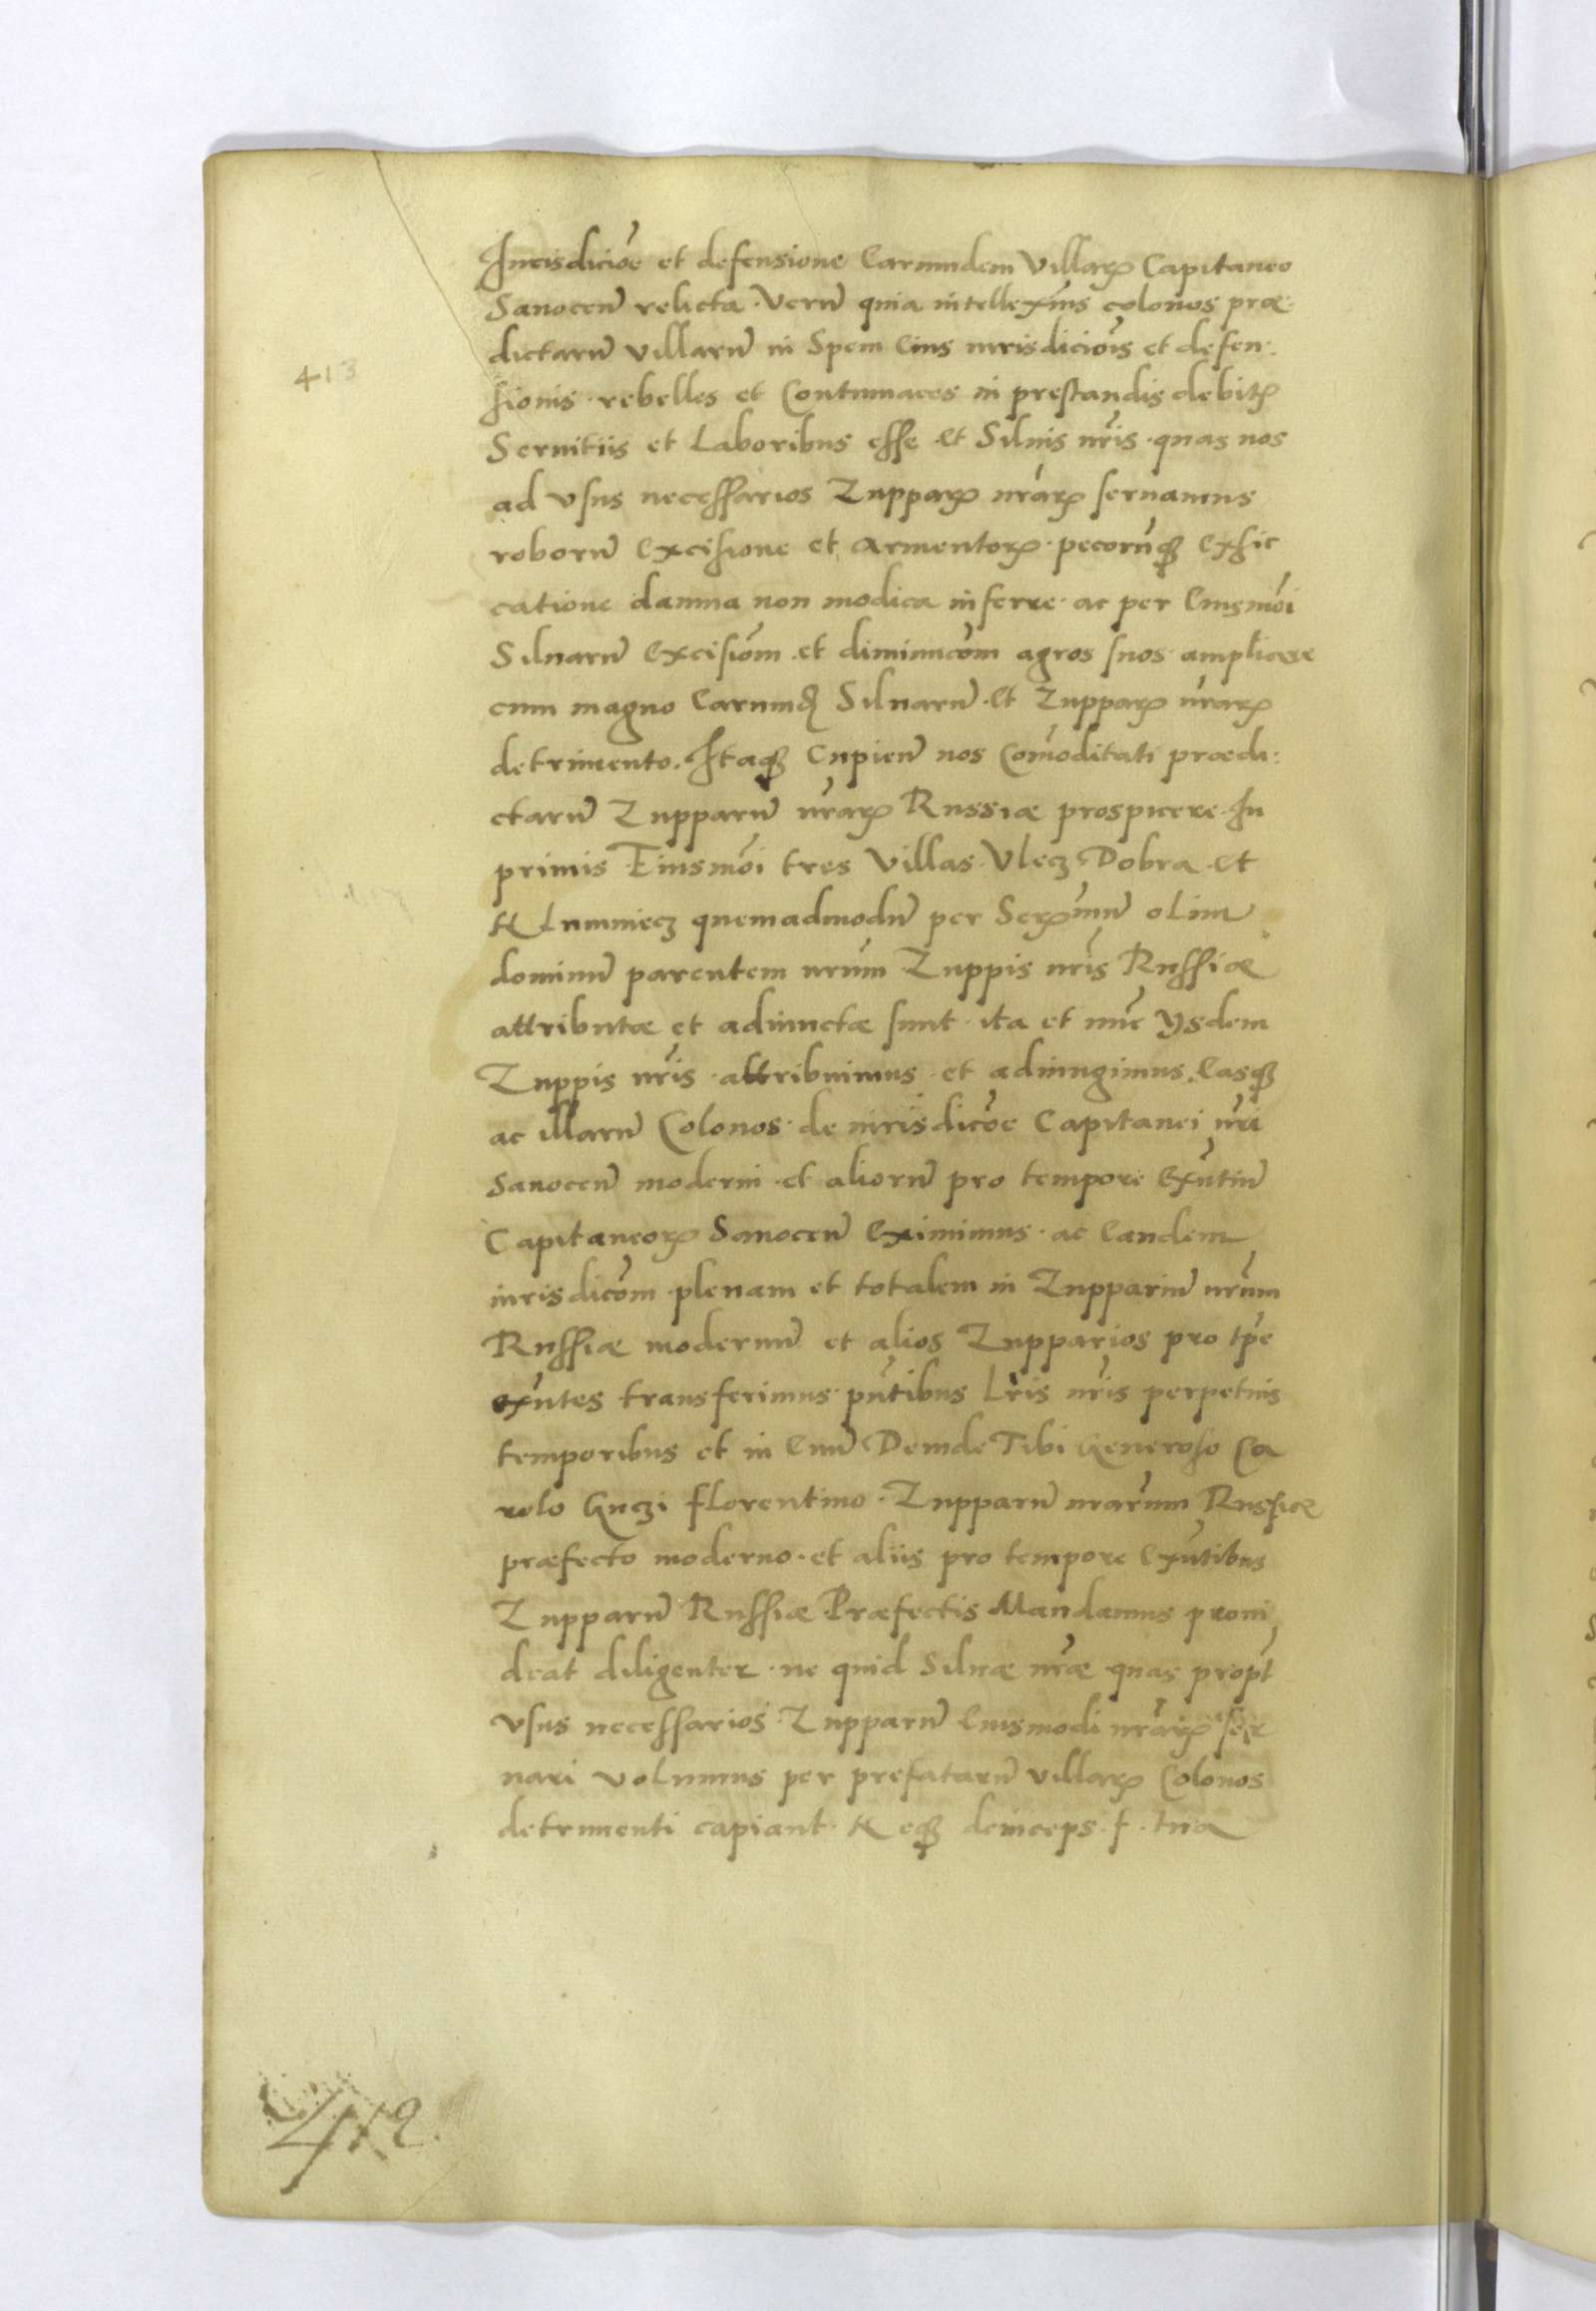 Iurisdicioe et defensione Earumdem Villarꝝ Capitaneo
Sanocen relicta. Verū quia intellexims colonos prae
dictarū villarū in Spem Eius iurisdiciois et defen:
sionis rebelles et Contumaces in prestandis debitꝭ
413
Seruitiis et Laboribus esse et Siluis nris quas nos
ad vsus necessarios Zupparꝝ nrarꝝ seruamus
roborū Excisione et armentorꝝ pecorūqꝫ Exsic
catione damna non modica inferre ac per Eiusmoi
Siluarū Excisiom et diminucom agros suos ampliare
cum magno Earumdꝫ Siluarū et Zupparꝝ nrarꝝ
detrimento. Itaqꝫ Cupien nos Comoditati praedi:
ctarū Zupparū nrarꝝ Russiae prospicere In
primis Eiusmoi tres Villas Vlecz Dobra et
Hlumniecz quemadmodū per Serꝫmū olim
dominū parentem nrum Zuppis nris Russiae
attributae et adiunctae sunt ita et nuc ysdem
Zuppis nris attribuimus et adiungimus Easqꝫ
ac illarū Colonos de iurisdicoe Capitanei nri
Sanocen moderni et aliorū pro tempore Exntiū
Capitaneorꝝ Sanocen Eximimus ac Eandem
iurisdicom plenam et totalem in Zuppariū nrum
Russiae modernū et alios Zupparios pro tpe
exntes transferimus pntibus Lris nris perpetuis
temporibus et in Euū Deinde Tibi Generoso Ca
rolo Guczi florentino Zupparū nrarum Russiae
praefecto moderno et aliis pro tempore Exntibus
Zupparū Russiae Praefectis Mandamus proui
deat diligenter ne quid Siluae nrae quas propt
vsus necessarios Zupparū Eiusmodi nrarꝝ ser
uari volumus per prefatarū villarꝝ Colonos
detrimenti capiant Neqꝫ deinceps f. tua
412.